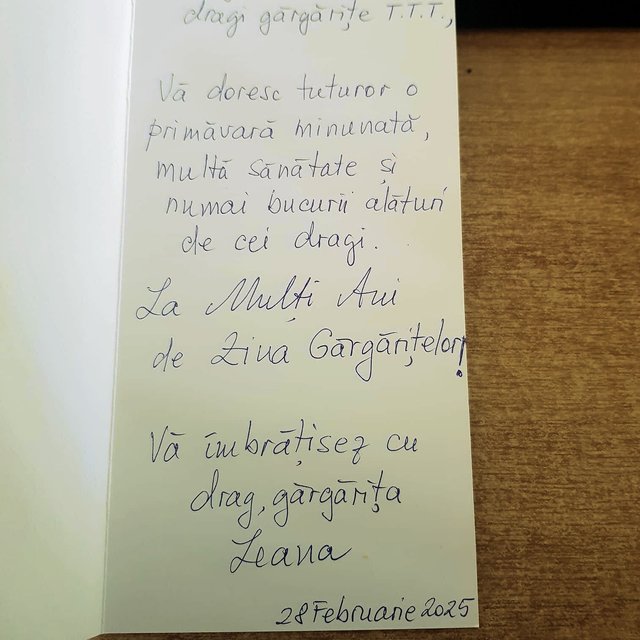 dragi gărgărițe T.T.T.,
Vă doresc tuturor o
primăvară minunată,
multă sănătate și
numai bucurii alături
de cei dragi.
La Mulți Ani
de Ziua Gărgărițelor!
Vă îmbrățisez cu
drag, gărgărița
Leana
28 Februarie 2025